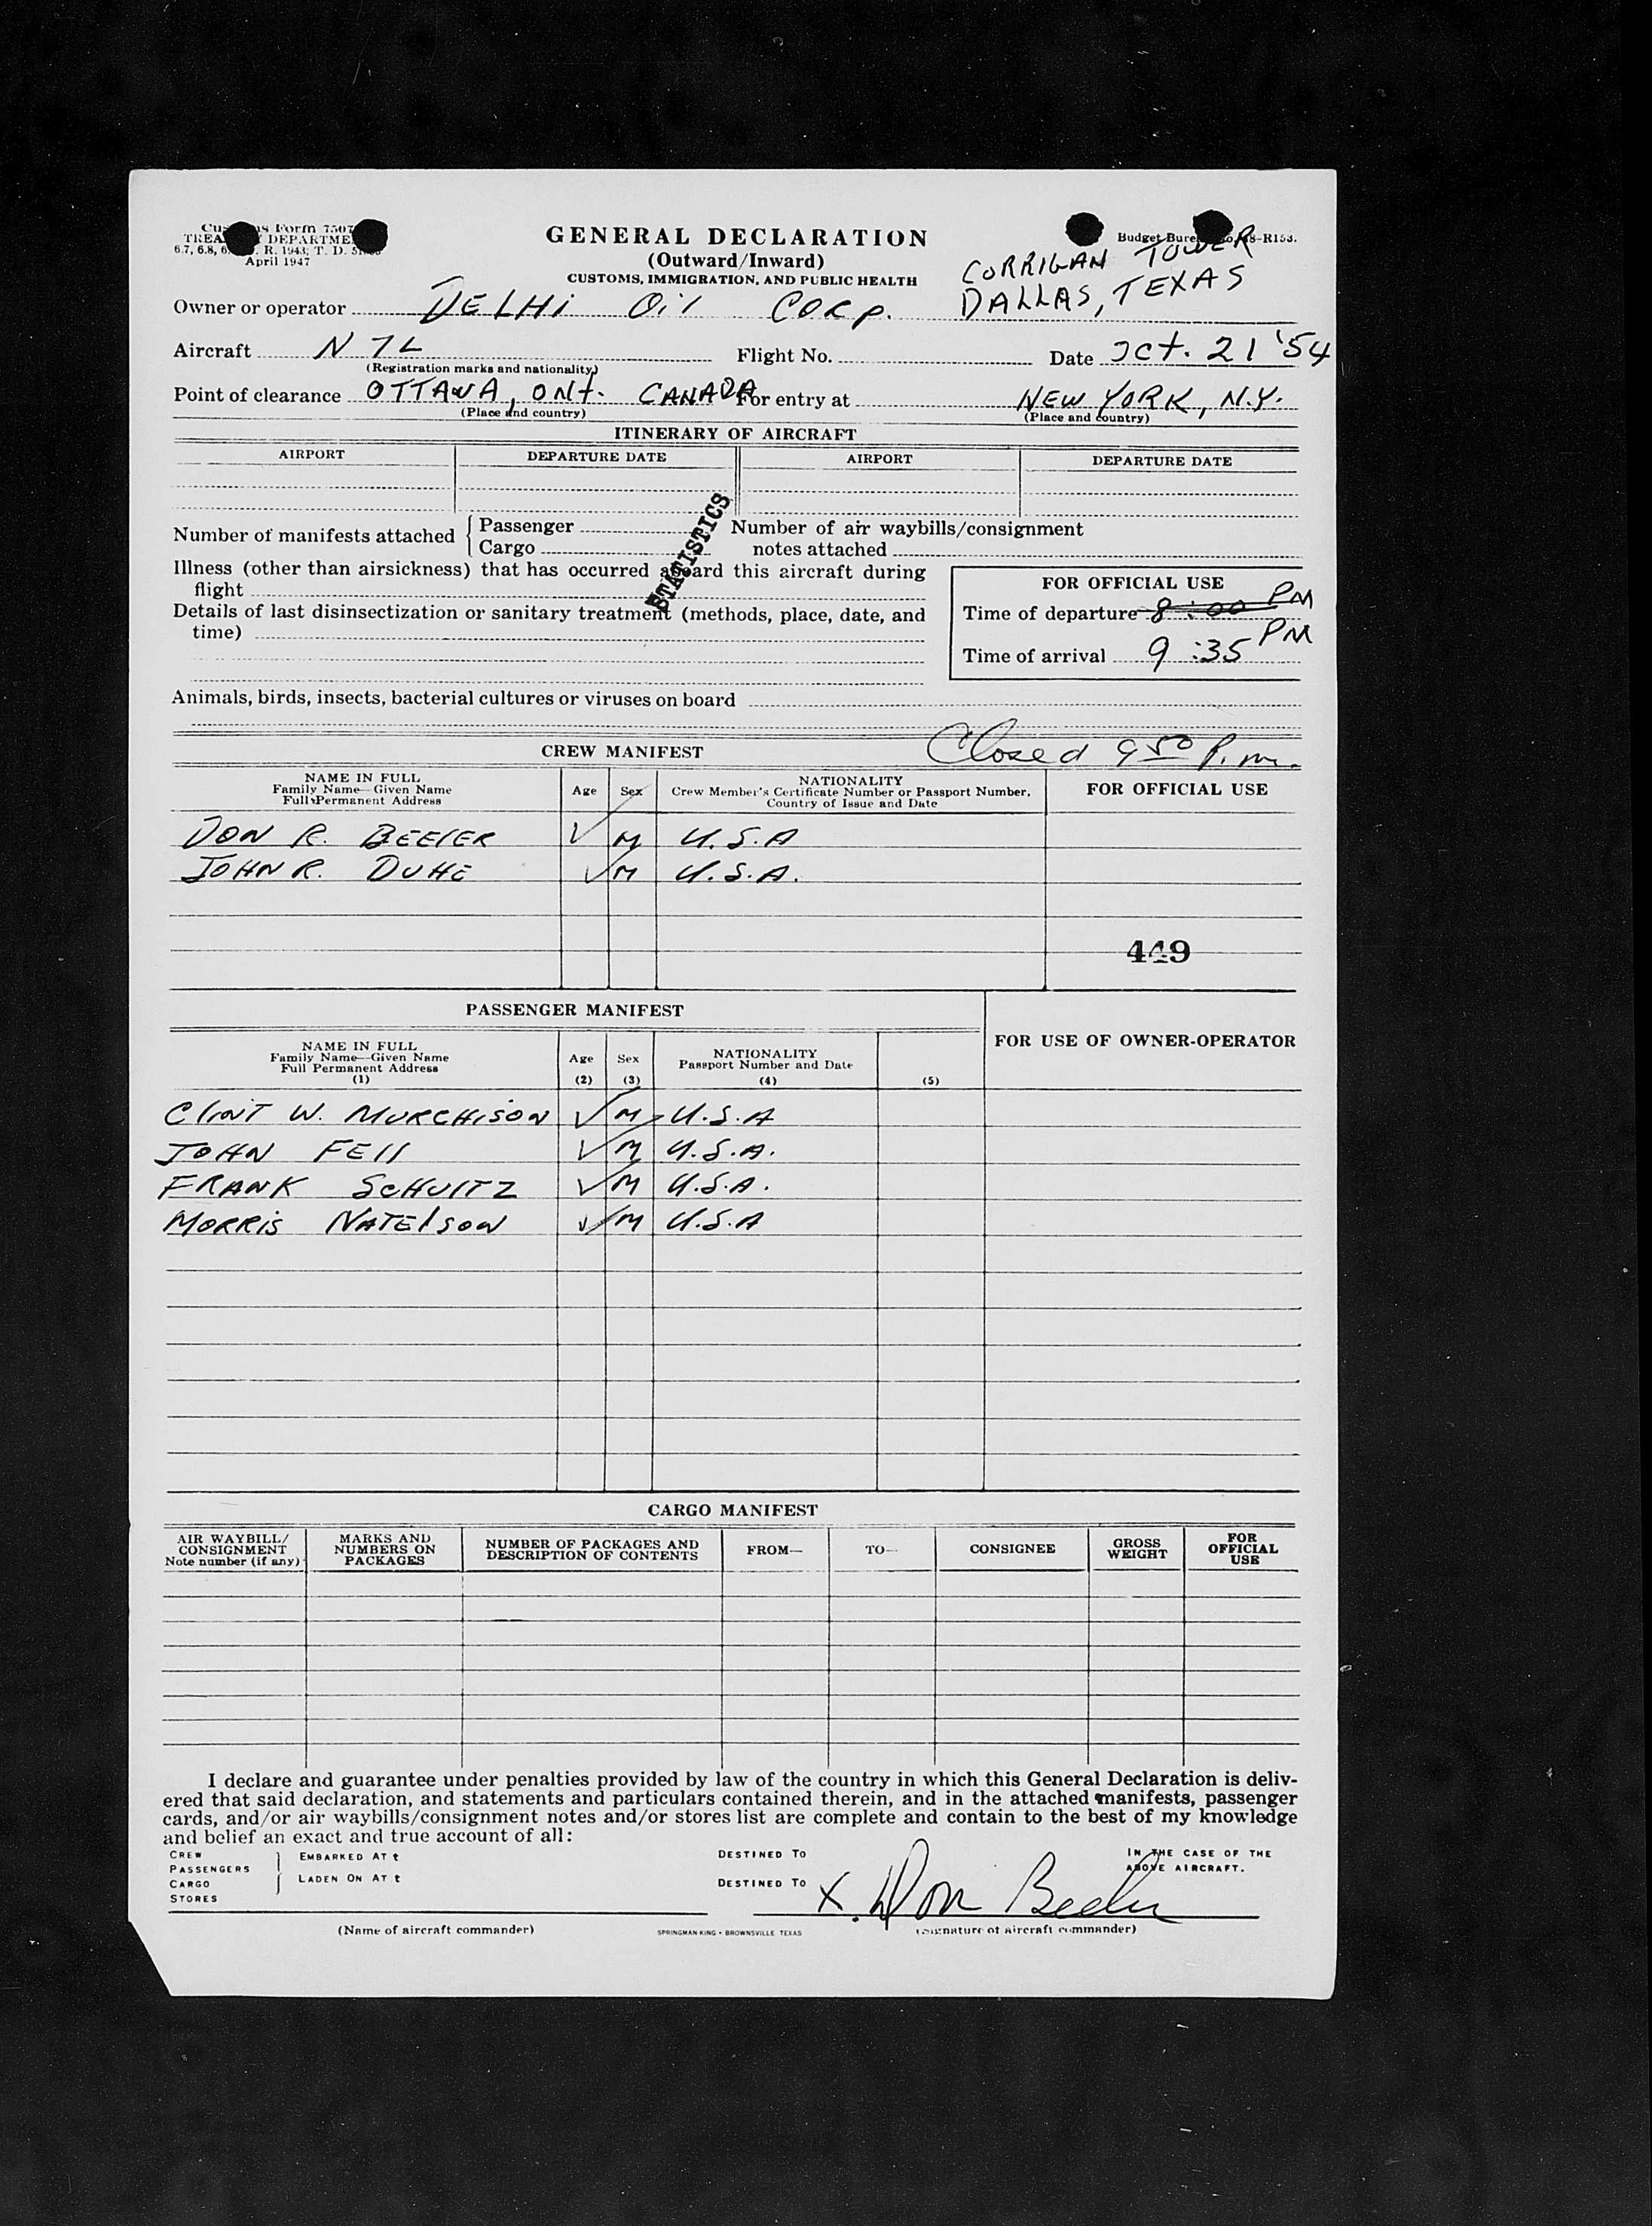 Customs Form 7507
TREASURY DEPARTMENT
6.7, 6.8, R. 1943; T. D.
April 1947
GENERAL DECLARATION
(Outward/Inward)
CUSTOMS, IMMIGRATION, AND PUBLIC HEALTH
Budget Bureau R153.
CORRIGAN TOWER
DALLAS, TEXAS
Owner or operator DELHI OIL CORP.
Aircraft N 7L Flight No. Date Oct. 21 '54
(Registration marks and nationality)
Point of clearance OTTAWA, ONT. CANADA For entry at NEW YORK, N.Y.
(Place and country) (Place and country)
ITINERARY OF AIRCRAFT
AIRPORT DEPARTURE DATE AIRPORT DEPARTURE DATE
STATISTICS
Number of manifests attached { Passenger Number of air waybills/consignment
Cargo notes attached
Illness (other than airsickness) that has occurred aboard this aircraft during
flight
Details of last disinsectization or sanitary treatment (methods, place, date, and
time)
FOR OFFICIAL USE
Time of departure 8:00 PM
Time of arrival 9:35 PM
Animals, birds, insects, bacterial cultures or viruses on board
CREW MANIFEST Closed 9 50 P.m.
NAME IN FULL
Family Name—Given Name
Full Permanent Address
Age Sex
NATIONALITY
Crew Member's Certificate Number or Passport Number,
Country of Issue and Date
FOR OFFICIAL USE
DON R. BEELER M U.S.A
JOHN R. DUHE M U.S.A.
449
PASSENGER MANIFEST
FOR USE OF OWNER-OPERATOR
NAME IN FULL
Family Name—Given Name
Full Permanent Address
(1)
Age
(2)
Sex
(3)
NATIONALITY
Passport Number and Date
(4)
(5)
CLINT W. MURCHISON M U.S.A
JOHN FELL M U.S.A.
FRANK SCHULTZ M U.S.A.
MORRIS NATELSON M U.S.A
CARGO MANIFEST
AIR WAYBILL/
CONSIGNMENT
Note number (if any)
MARKS AND
NUMBERS ON
PACKAGES
NUMBER OF PACKAGES AND
DESCRIPTION OF CONTENTS
FROM—
TO—
CONSIGNEE
GROSS
WEIGHT
FOR
OFFICIAL
USE
I declare and guarantee under penalties provided by law of the country in which this General Declaration is deliv-
ered that said declaration, and statements and particulars contained therein, and in the attached manifests, passenger
cards, and/or air waybills/consignment notes and/or stores list are complete and contain to the best of my knowledge
and belief an exact and true account of all:
CREW
PASSENGERS
CARGO
STORES
EMBARKED AT †
LADEN ON AT †
DESTINED TO
DESTINED TO
IN THE CASE OF THE
ABOVE AIRCRAFT.
X. Don Beeler
(Name of aircraft commander) SPRINGMAN-KING • BROWNSVILLE TEXAS (Signature of aircraft commander)